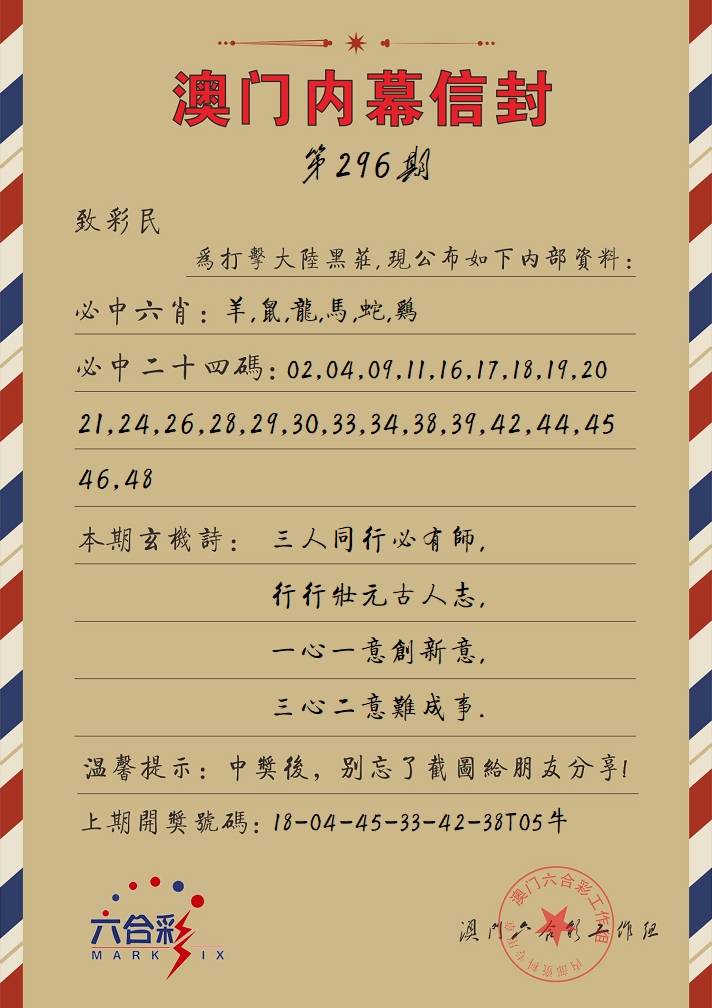 澳门内幕信封
第296期
致彩民
為打擊大陸黑莊,現公布如下内部資料:
必中六肖:羊,鼠,龍,馬,蛇,鷄
必中二十四碼:02,04,09,11,16,17,18,19,20
21,24,26,28,29,30,33,34,38,39,42,44,45
46,48
本期玄機詩: 三人同行必有師,
行行壯元古人志,
一心一意創新意,
三心二意難成事.
温馨提示:中獎後,别忘了截圖給朋友分享!
上期開獎號碼:18-04-45-33-42-38T05牛
六合彩
MARK SIX
澳门六合彩工作组
澳门六合彩工作组
内部资料专用章